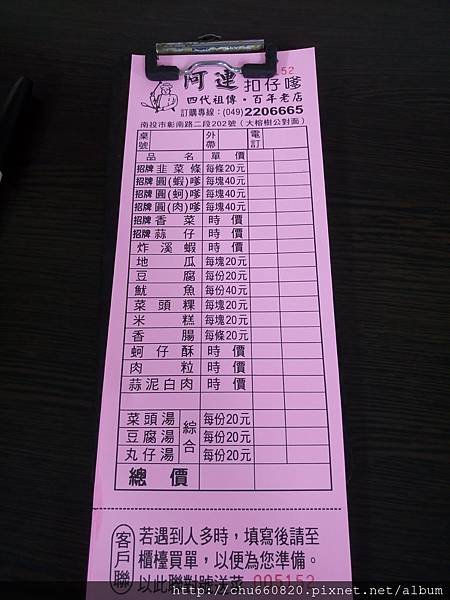 阿連 扣仔嗲
四代祖傳・百年老店
訂購專線：(049)2206665
南投市彰南路二段202號（大榕樹公對面）
桌號 外帶 電訂
品名 單價
招牌韭菜條 每條20元
招牌圓(蝦)嗲 每塊40元
招牌圓(蚵)嗲 每塊40元
招牌圓(肉)嗲 每塊40元
招牌香菜 時價
招牌蒜仔 時價
炸溪蝦 時價
地瓜 每塊20元
豆腐 每份20元
魷魚 每份40元
菜頭粿 每塊20元
米糕 每塊20元
香腸 每條20元
蚵仔酥 時價
肉粒 時價
蒜泥白肉 時價
菜頭湯 綜合 每份20元
豆腐湯 每份20元
丸仔湯 每份20元
總價
客戶聯
若遇到人多時，填寫後請至
櫃檯買單，以便為您準備。
以此聯對號送菜 005152
http://chu660820.pixnet.net/album